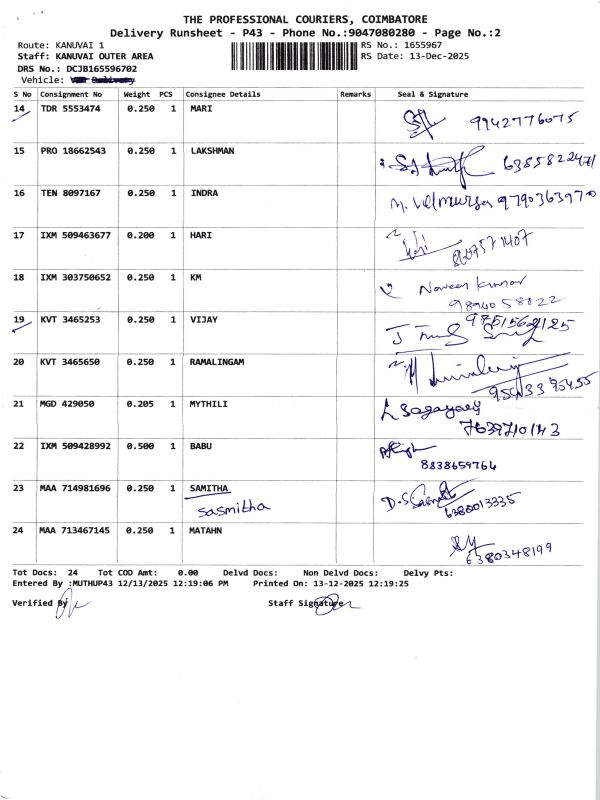 THE PROFESSIONAL COURIERS, COIMBATORE
Delivery Runsheet - P43 - Phone No.:9047080280 - Page No.:2
Route: KANUVAI 1 RS No.: 1655967
Staff: KANUVAI OUTER AREA RS Date: 13-Dec-2025
DRS No.: DCJB165596702
Vehicle:
S No Consignment No Weight PCS Consignee Details Remarks Seal & Signature
14 TDR 5553474 0.250 1 MARI
9942776075
15 PRO 18662543 0.250 1 LAKSHMAN
6385822471
16 TEN 8097167 0.250 1 INDRA
9790363970
17 IXM 509463677 0.200 1 HARI
18 IXM 303750652 0.250 1 KM
Naveen Kumar
9894058822
19 KVT 3465253 0.250 1 VIJAY
20 KVT 3465650 0.250 1 RAMALINGAM
21 MGD 429050 0.205 1 MYTHILI
22 IXM 509428992 0.500 1 BABU
8838659764
23 MAA 714981696 0.250 1 SAMITHA
sasmitha
6380013335
24 MAA 713467145 0.250 1 MATAHN
6380348199
Tot Docs: 24 Tot COD Amt: 0.00 Delvd Docs: Non Delvd Docs: Delvy Pts:
Entered By :MUTHUP43 12/13/2025 12:19:06 PM Printed On: 13-12-2025 12:19:25
Verified By Staff Signature